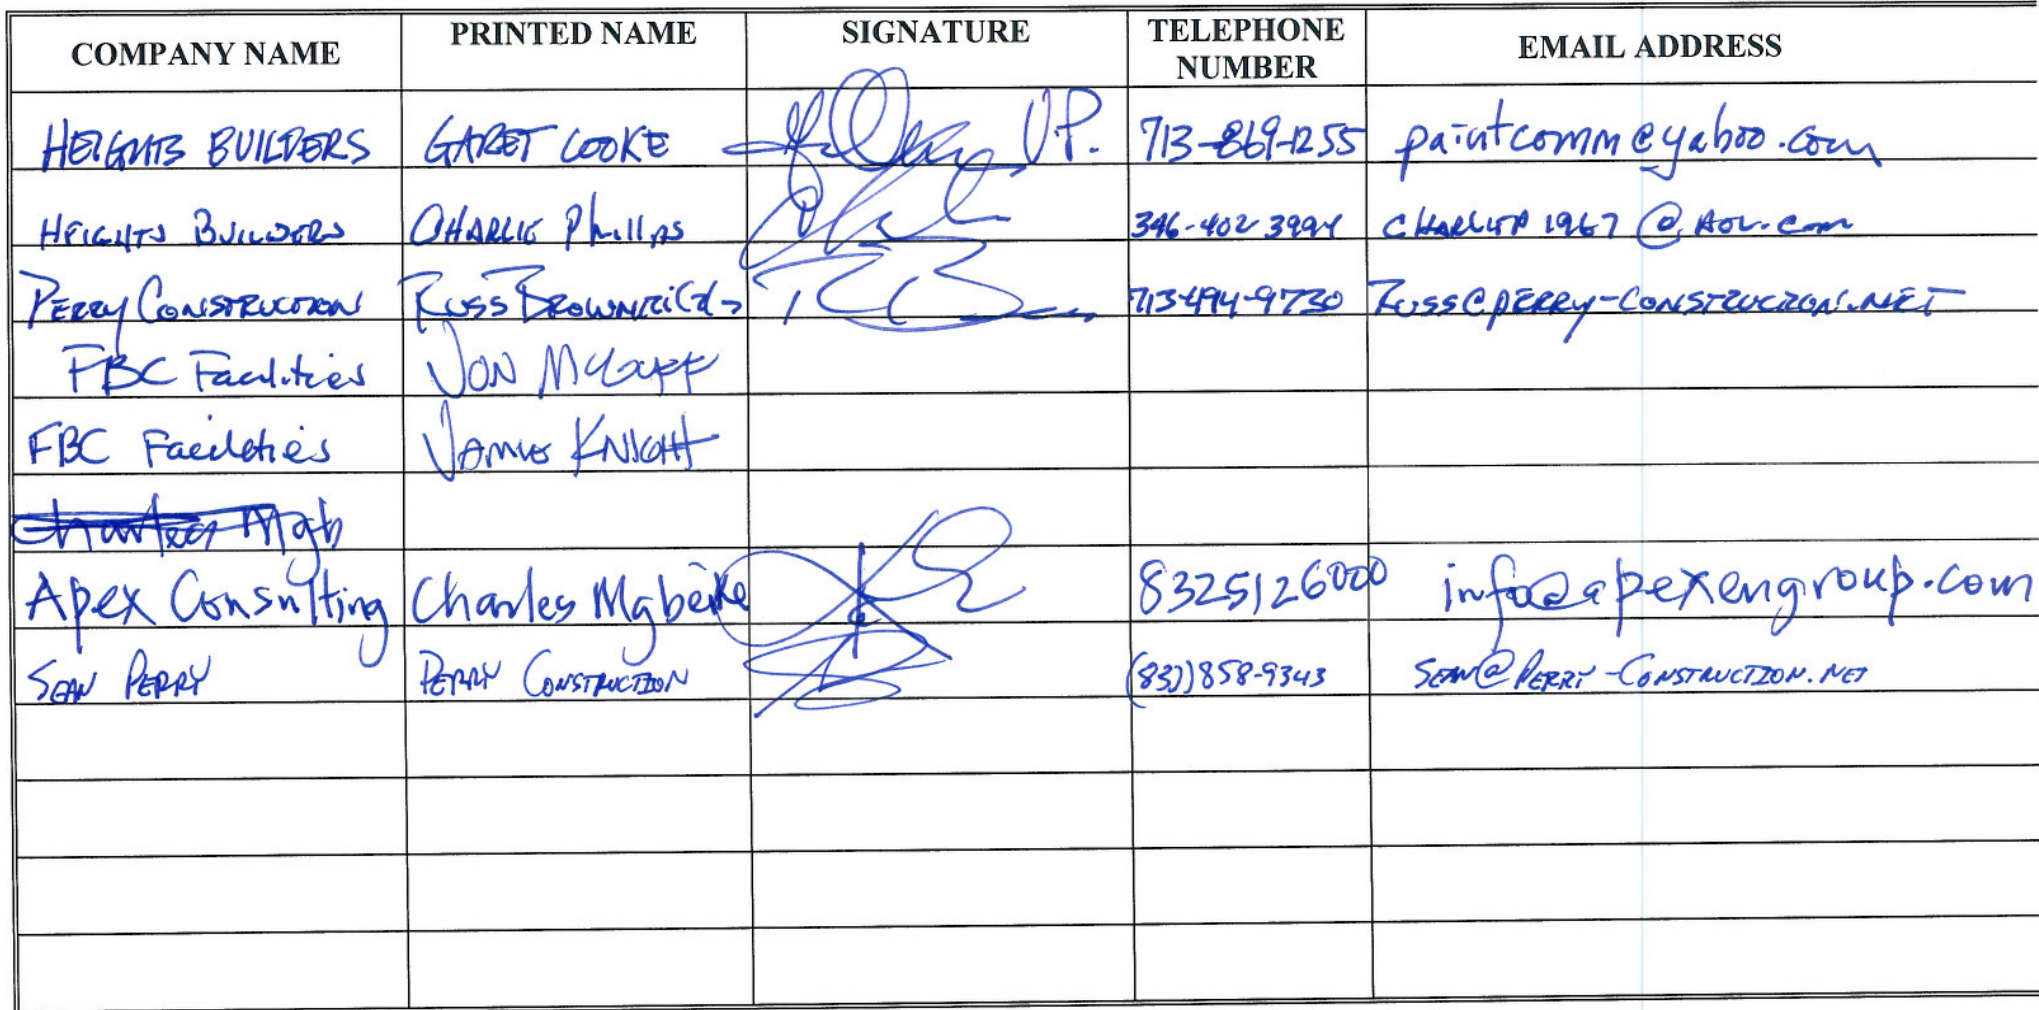 COMPANY NAME PRINTED NAME SIGNATURE TELEPHONE NUMBER EMAIL ADDRESS
HEIGHTS BUILDERS GARET COOKE V.P. 713-869-1255 paintcomm@yahoo.com
HEIGHTS BUILDERS CHARLIE Phillips 346-402-3994 CHARLIEP1967@AOL.com
PERRY CONSTRUCTION RUSS 713-494-9730 RUSS@PERRY-CONSTRUCTION.NET
FBC Facilities JON
FBC Facilities JAMIE KNIGHT
Apex Consulting Charles Mgbeike 8325126000 info@apexengroup.com
SEAN PERRY PERRY CONSTRUCTION (832)858-9343 SEAN@PERRY-CONSTRUCTION.NET